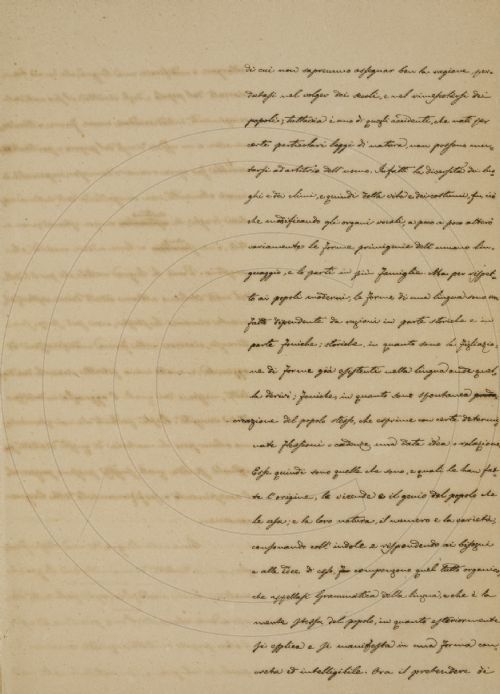 di cui non sapremmo assegnar ben la ragione per-
dutasi nel volger dei secoli, e nel rimescolarsi dei
popoli; tuttavia è uno di quegli accidenti, che nati per
certe particolari leggi di natura, non possono mu-
tarsi ad arbitrio dell'uomo. Infatti la diversità dei luo-
ghi e de climi, e quindi della vita e dei costumi, fu ciò
che modificando gli organi vocali, a poco a poco alterò
variamente le forme primigenie dell'umano lin-
guaggio, e lo partì in più famiglie. Ma per rispet-
to ai popoli moderni, le forme di una lingua sono in
fatti dipendenti da ragioni in parte storiche e in
parte foniche; storiche, in quanto sono la figliazio-
ne di forme già esistenti nella lingua onde quel-
la derivi; foniche, in quanto sono spontanea
creazione del popolo stesso, che esprime con certe determi-
nate flessioni o cadenze una data idea o relazione
Esse quindi sono quelle che sono, e quali le han fat-
te l'origine, le vicende e il genio del popolo che
le usa; e la loro natura, il numero e la varietà,
consonando coll'indole e rispondendo ai bisogni
e alle idee di esso, compongono quel tutto organico,
che appellasi Grammatica della lingua, e che è la
mente stessa del popolo, in quanto esteriormente
si esplica e si manifesta in una forma con-
creta ed intelligibile. Ora il pretendere di